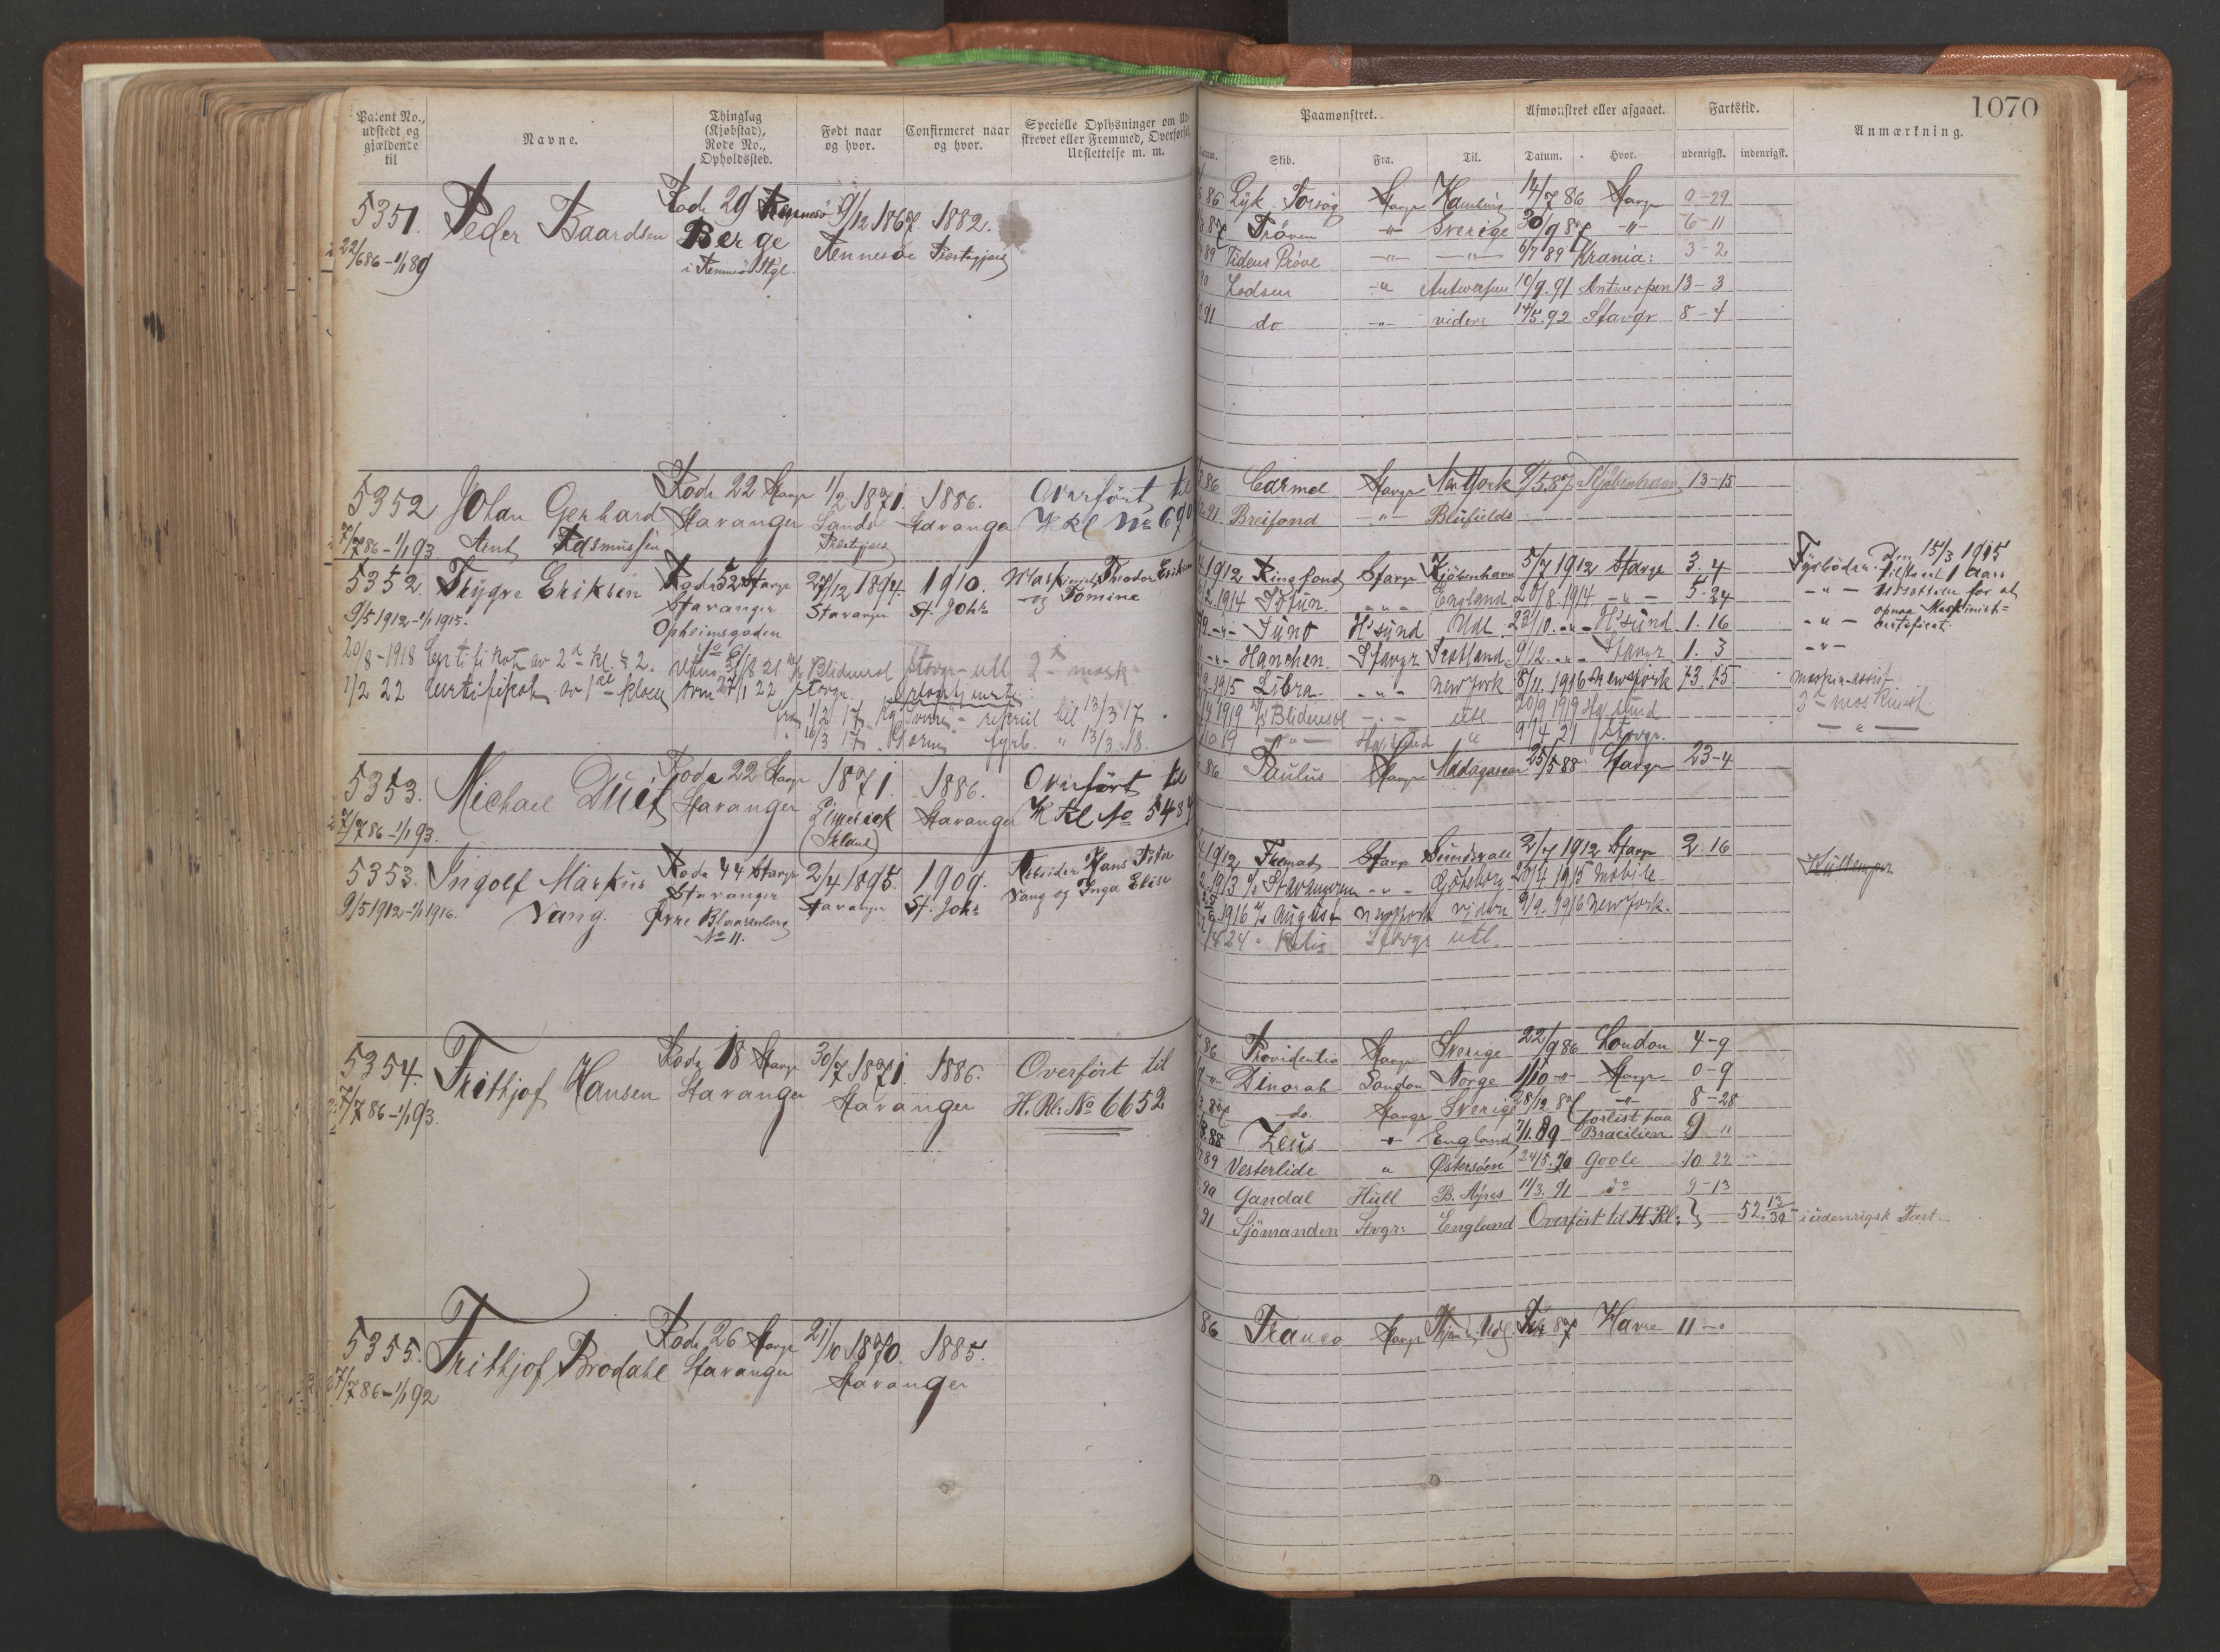 1070
Patent No., udstedt og gjældende til
Navne.
Thinglag (Kjøbstad), Rode No., Opholdssted.
Født naar og hvor.
Confirmeret naar og hvor.
Specielle Oplysninger om Ud-
skrevet eller Fremmed, Overførsel,
Udslettelse m. m.
Paamønstret.
Afmønstret eller afgaaet.
Fartstid.
Anmærkning.
Skib. Fra. Til. Datum. Hvor. udenrigsk. indenrigsk.
5351. Peder Baardsen Rode 29 Rennesö 9/12 1867. 1882.
22/6 86 – 1/1 89 Berge Rennesöe Præstegjæld
i Rennesö Skgl.
86 Lyk. Forsøg Stavgr Hamburg 14/7 86 Stavgr 0-29
87 Prøven -"- Sverige 30/9 87 -"- 6-11
89 Tidens Prøve -"- -"- 6/7 89 Krania: 3-2
90 Lodsen -"- Antwerpen 10/9. 91 Antwerpen 13-3
91 do -"- videre 14/5. 92 Stavgr 8-4
5352 Johan Gerhard Rode 22 Stavgr 1/2 1871. 1886. Overført til
7/7 86 – 1/1 93 Arent Rasmussen Stavanger Sands Præstegjæld Stavanger H Rl No 690
86 Carmel Stavgr New York 9/5 87 Kjöbenhavn 13-15
91 Breifond -"- Blufields
5352. Trygve Eriksen Rode 52 Stavgr 27/12 1894. 1910. Maskinist Theodor Eriksen
9/5 1912 – 1/1 1915. Stavanger Stavanger St. Johs og Tomine
Opheimsgaden
20/8 – 1918 Certifikat av 2n kl.
1/2 22 Certifikat av 1ste klasse
Blidensol Stavgr – utl 2den mask
1/2 17 refrul til 13/3 17
16/3 17 fyrb. " 13/3 18.
1912 Ringfond Stavgr Kjöbenhavn 5/7 1912 Stavgr 3. 4 Fyrböder. Den 15/3 1915
1914 Idun -"- England 20/8. 1914 -"- 5. 24 tilstaaet 1 Aars
Juno H'sund Udl. 23/10. -"- H'sund 1. 16 Udsættelse for at
opnaa Maskinist-
certificat.
Hanchen Stavgr Scotland 9/12. -"- Stavgr 1. 3
1915 Libra -"- New York 8/11. 1916 New York 13. 15 maskin-assist
1919 Blidensol -"- utl 20/9 1919 Hg. sund 3die maskinist
19 -"- Hg. sund " 9/4 21 Stavgr. -"-
5353. Michael Duet Rode 22 Stavgr 1871. 1886. Overført til
7/7 86 – 1/1 93. Stavanger Limerick Stavanger H Rl No 5484
(Irland)
86 Paulus Stavgr Madagascar 25/5 88 Stavgr 23-4
5353. Ingolf Markus Rode 44 Stavgr 2/4 1895. 1909. Arbeider Hans Peter
9/5 1912 – 1/1 1916. Vang. Stavanger Stavanger St. Johs Vang og Inga Elise
Øvre Blaasenborg
No 11.
1912 Fremad Stavgr Sundsvall 2/7 1912 Stavgr 2. 16
1913 Stavangeren -"- Göteborg 20/4 1915 Mobile
1916 August New York viden 9/9. 1916 New York.
24 Stavgr utl.
5354. Frithjof Hansen Rode 18 Stavgr 30/7 1871. 1886. Overfört til
7/7 86 – 1/1 93. Stavanger Stavanger H. Rl: No 6652
86 Providentia Stavgr Sverige 22/9 86 London 4-9
-"- Dinorah London Norge 1/10 -"- Stavgr 0-9
87 do. Stavgr Sverige 28/12 87 -"- 8-28
88 Zeus -"- England 7/1. 89 forlist paa Bracilien 9 11
89 Vesterlide " Østersöen 24/5. 90 Goole 10 22
90 Gandal Hull B. Ayres 11/3. 91 do 9-13
91 Sjömanden Stvgr: England Overfört til H Rl: } – 52. 13/30 – i udenrigsk Fart.
5355. Frithjof Brodahl Rode 26 Stavgr 21/10 1870. 1885.
7/7 86 – 1/1 92 Stavanger Stavanger
86 Franco Stavgr Havre 11-"